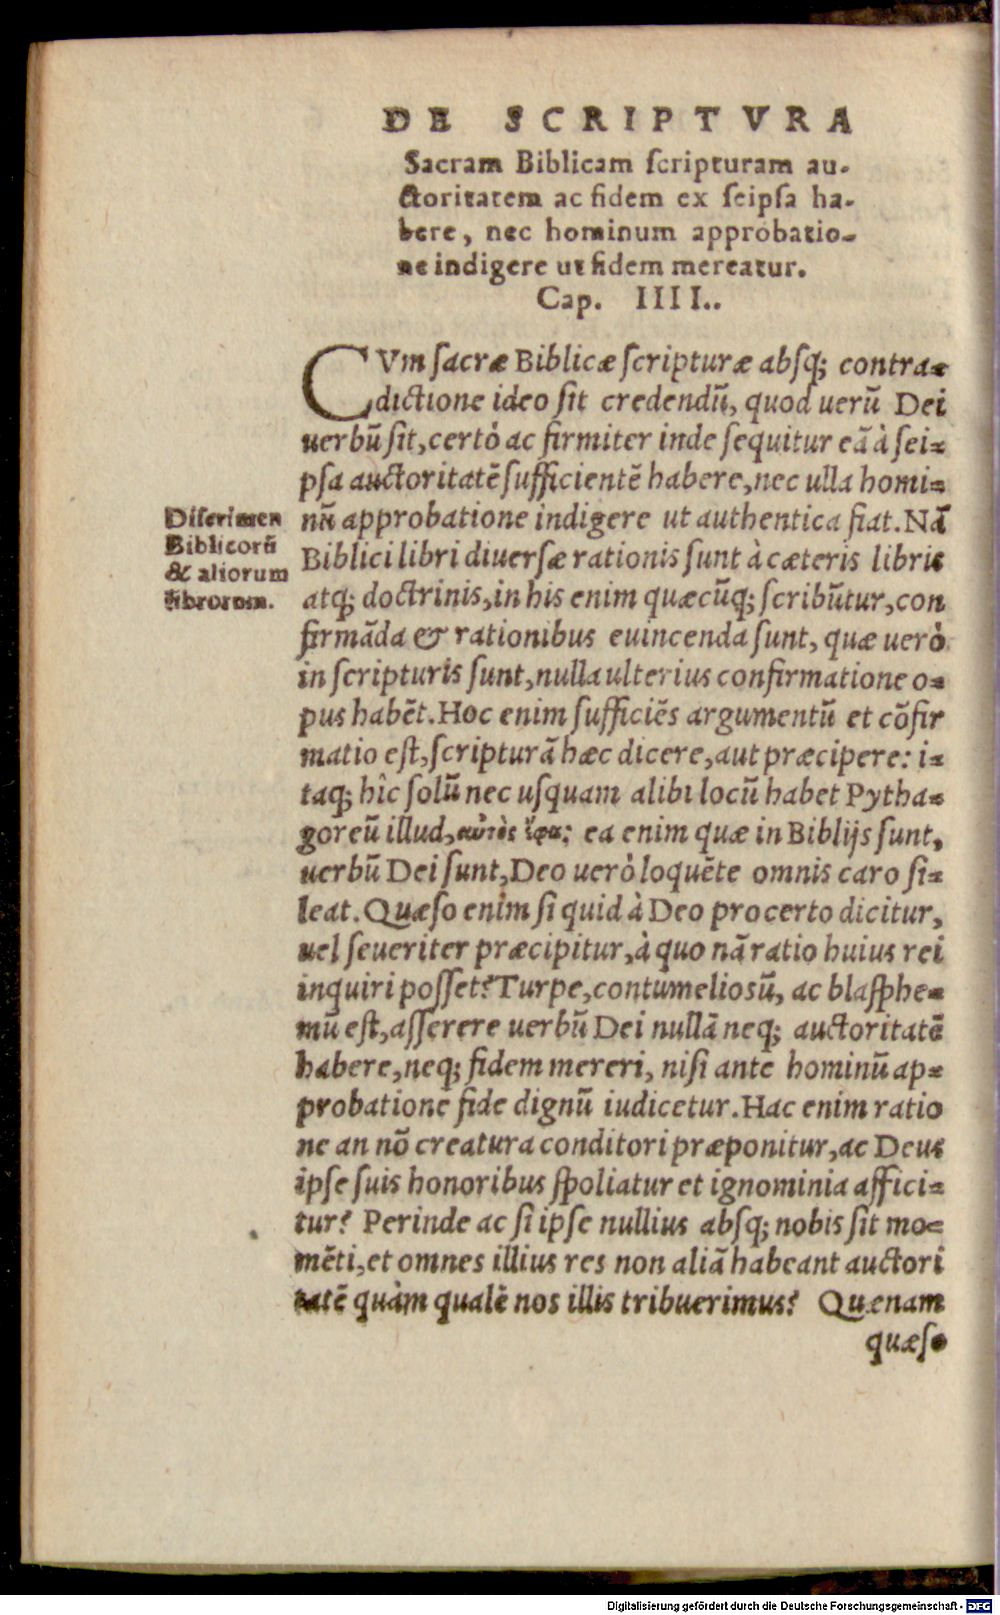 DE SCRIPTVRA
Sacram Biblicam ſcripturam au-
ctoritatem ac fidem ex ſeipſa ha-
bere, nec hominum approbatio-
ne indigere ut fidem mereatur.
Cap. IIII..
CVm ſacræ Biblicæ ſcripturæ abſq; contra-
dictione ideo ſit credendū, quod uerū Dei
uerbū ſit, certò ac firmiter inde ſequitur eā à ſei-
pſa auctoritatē ſufficientē habere, nec ulla homi-
nū approbatione indigere ut authentica fiat. Nā
Biblici libri diuerſæ rationis ſunt à cæteris libris
atq; doctrinis, in his enim quæcūq; ſcribūtur, con
firmāda & rationibus euincenda ſunt, quæ uerò
in ſcripturis ſunt, nulla ulterius confirmatione o-
pus habēt. Hoc enim ſufficiēs argumentū et cōfir
matio eſt, ſcripturā hæc dicere, aut præcipere: i-
taq; hîc ſolū nec uſquam alibi locū habet Pytha-
goreū illud, αὐτὸς ἔφα: ea enim quæ in Biblijs ſunt,
uerbū Dei ſunt, Deo uerò loquēte omnis caro ſi-
leat. Quæſo enim ſi quid à Deo pro certo dicitur,
uel ſeueriter præcipitur, à quo nā ratio huius rei
inquiri poſſet? Turpe, contumelioſū, ac blaſphe-
mū eſt, aſſerere uerbū Dei nullā neq; auctoritatē
habere, neq; fidem mereri, niſi ante hominū ap-
probatione fide dignū iudicetur. Hac enim ratio
ne an nō creatura conditori præponitur, ac Deus
ipſe ſuis honoribus ſpoliatur et ignominia affici-
tur? Perinde ac ſi ipſe nullius abſq; nobis ſit mo-
mēti, et omnes illius res non aliā habeant auctori
tatē quàm qualē nos illis tribuerimus? Quænam
quæſo
Diſcrimen
Biblicorū
& aliorum
librorum.
Digitalisierung gefördert durch die Deutsche Forschungsgemeinschaft - DFG